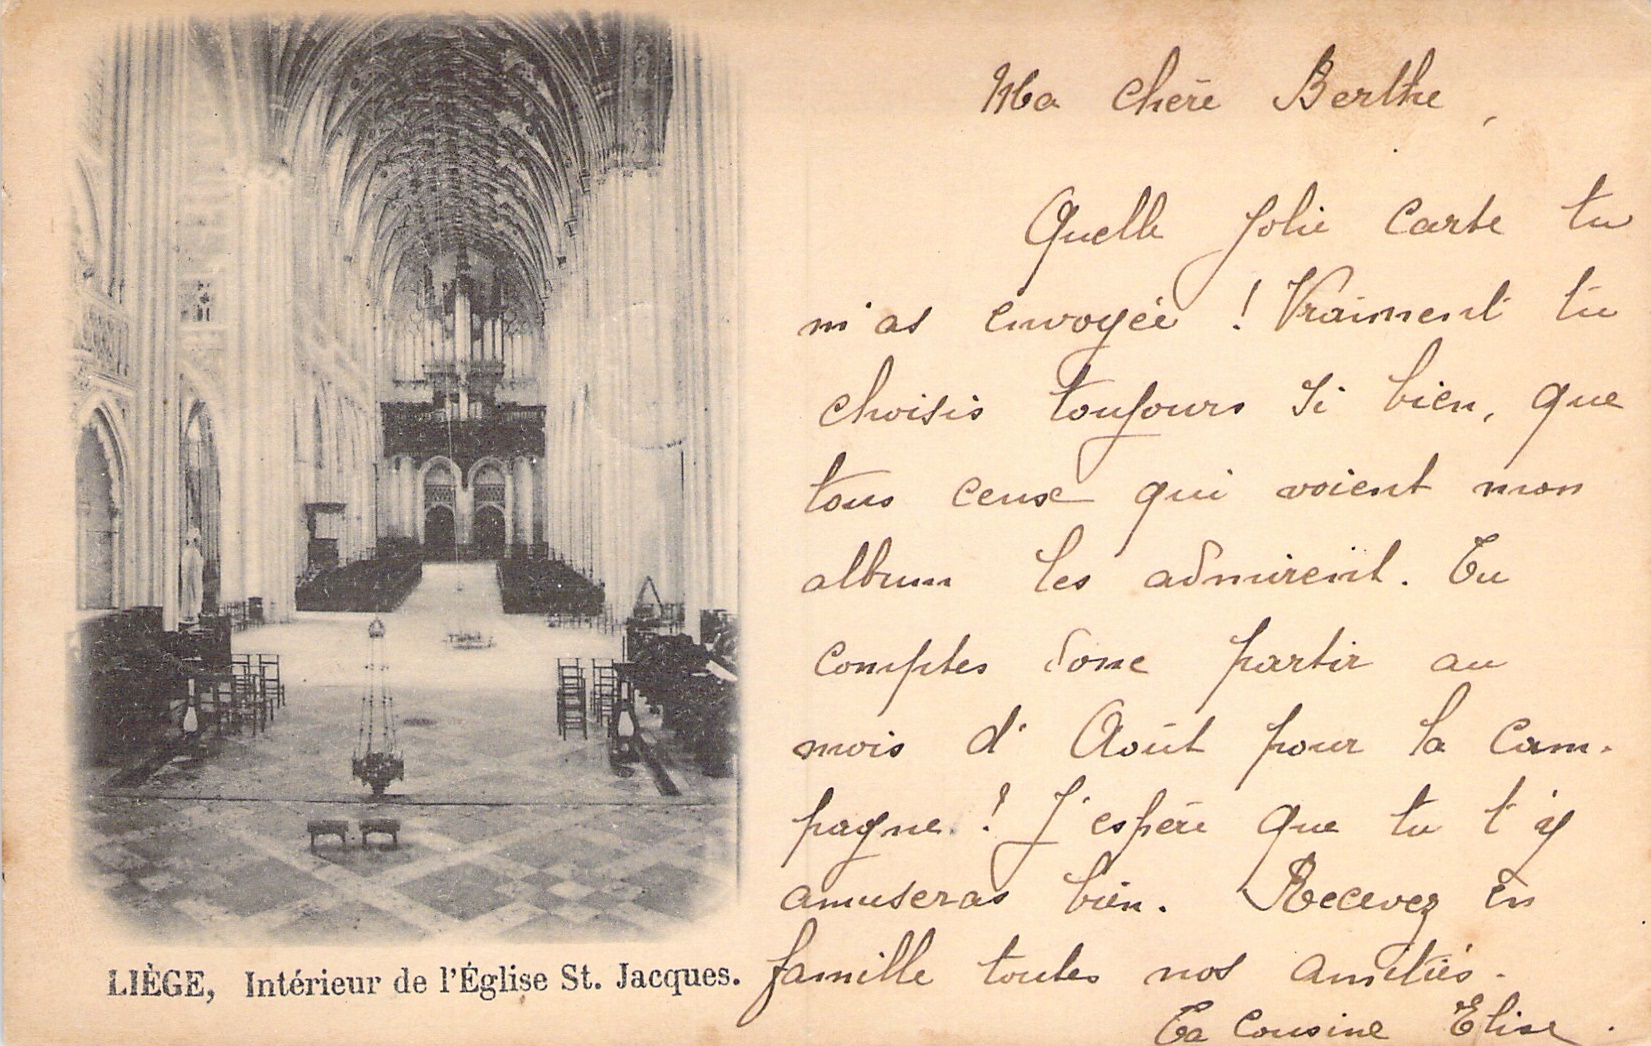 Ma chère Berthe,
Quelle jolie carte tu
m'as envoyée ! Vraiment tu
choisis toujours si bien, que
tous ceux qui voient mon
album les admirent. Tu
comptes donc partir au
mois d'Août pour la cam-
pagne ! J'espère que tu t'y
amuseras bien. Recevez en
famille toutes nos amitiés.
Ta cousine Elise.
LIÈGE, Intérieur de l'Église St. Jacques.